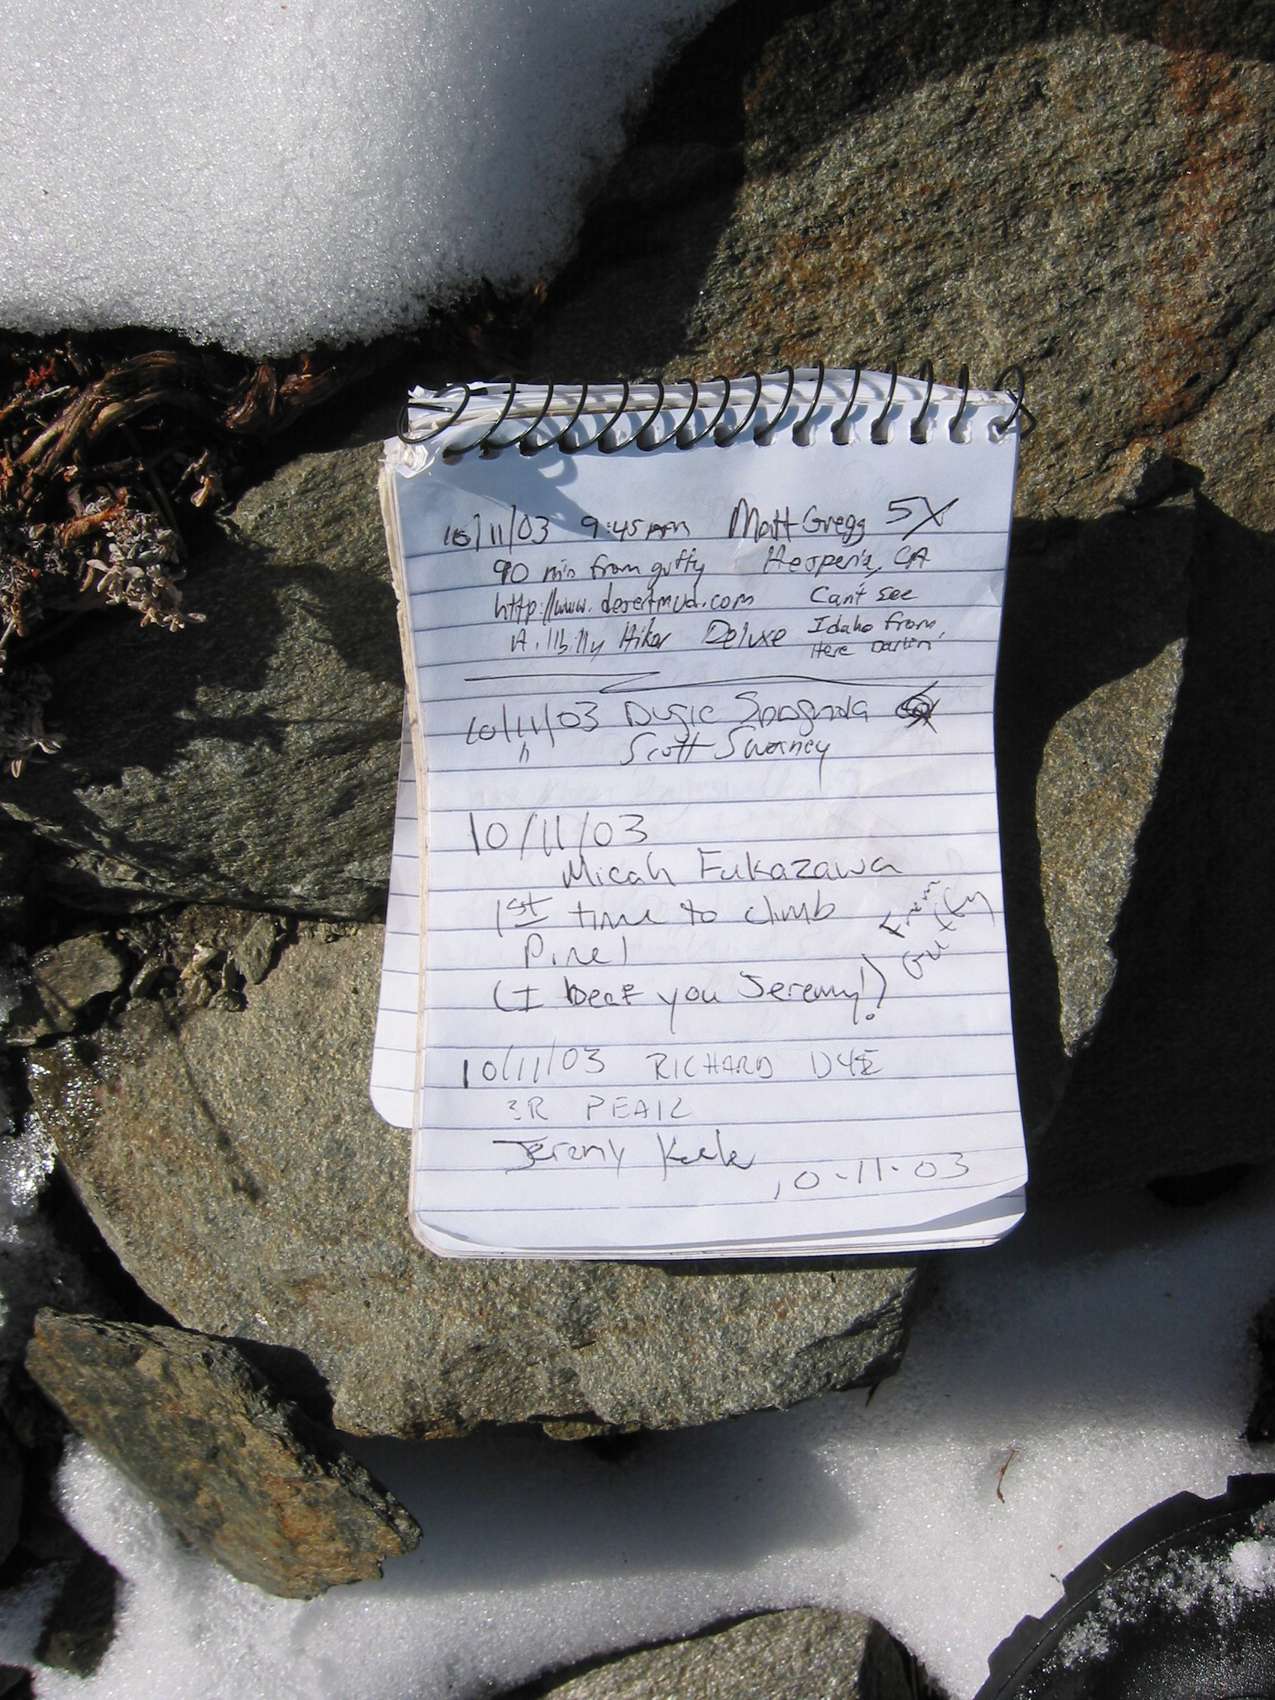 10/11/03 9:45 am Matt Gregg 5X
90 min from guffy Hesperia, CA
http://www.desertmud.com Can't see
Hillbilly Hiker Deluxe Idaho from
Here Darlin'
10/11/03
Scott Swarney
10/11/03
Micah Fukazawa
1st time to climb
Pine! From
Guffy
(I beat you Jeremy!)
10/11/03 RICHARD DYE
3R PEAK
Jeremy
10-11-03